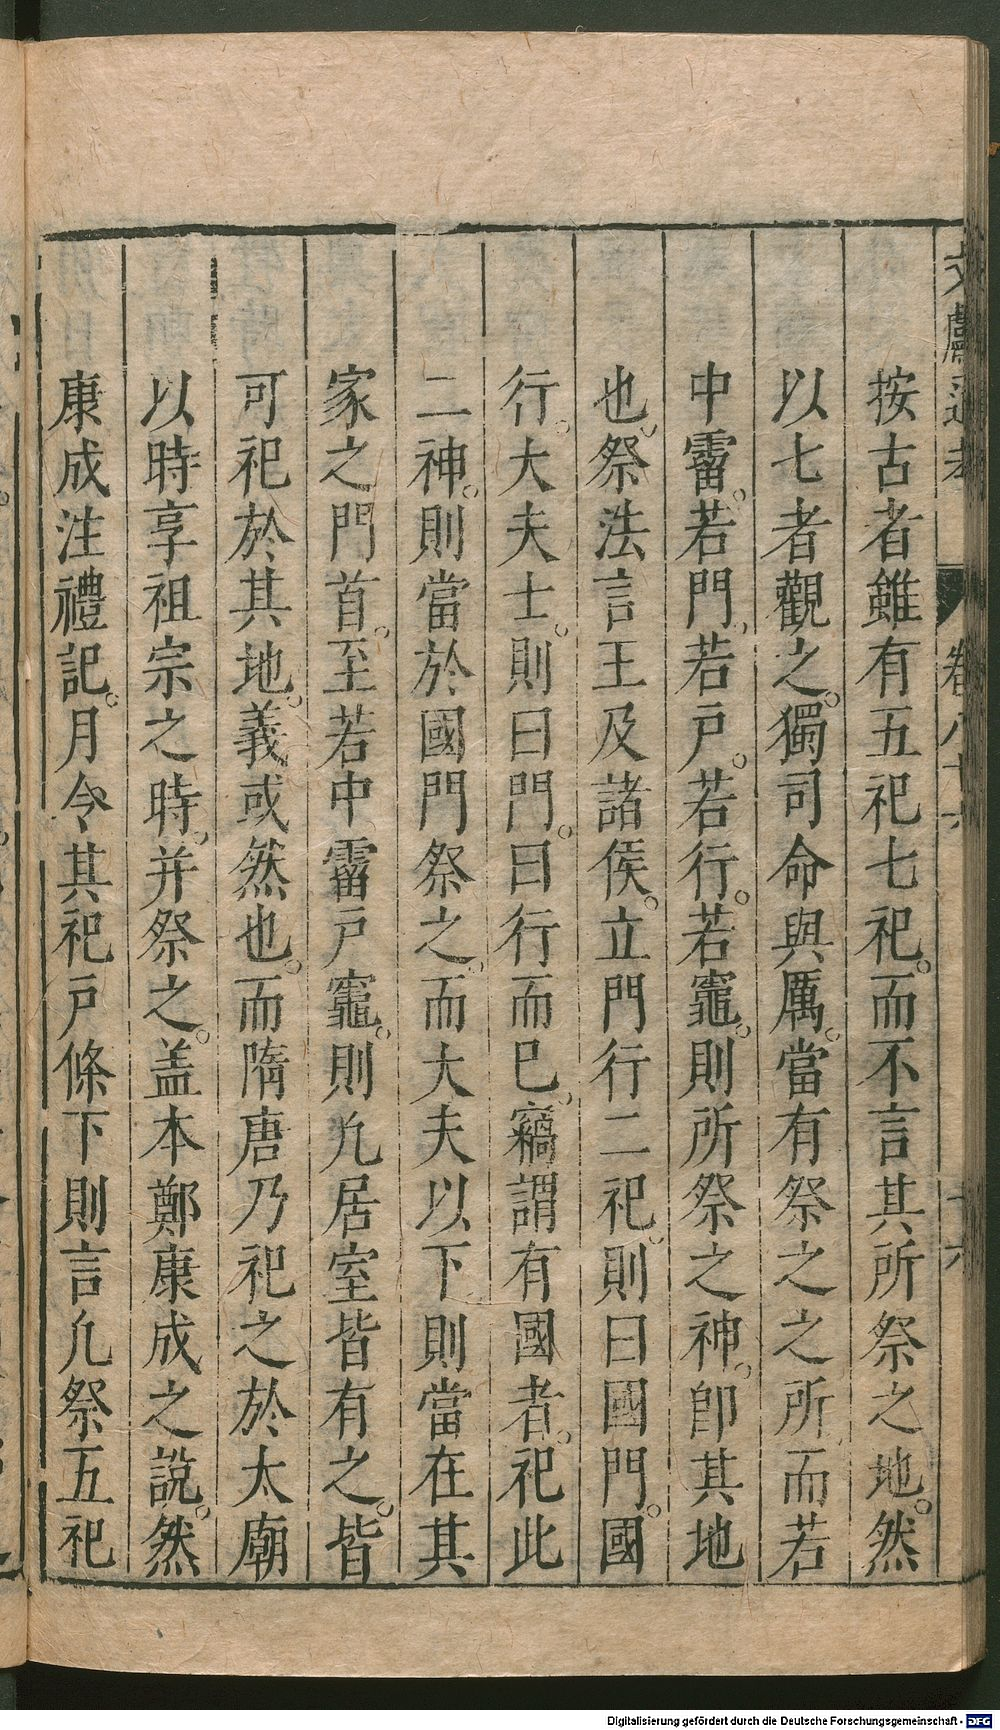 文獻通考 卷八十六 十六
按古者雖有五祀七祀。而不言其所祭之地。然
以七者觀之。獨司命與厲。當有祭之之所。而若
中霤。若門。若戶。若行。若竈。則所祭之神。卽其地
也。祭法言王及諸侯。立門行二祀。則曰國門。國
行。大夫士。則曰門。曰行而已。竊謂有國者。祀此
二神。則當於國門祭之。而大夫以下則當在其
家之門首。至若中霤戶竈。則凢居室皆有之。皆
可祀於其地。義或然也。而隋唐乃祀之於太廟
以時享祖宗之時。并祭之。盖本鄭康成之說。然
康成注禮記。月令其祀戶條下則言凢祭五祀
Digitalisierung gefördert durch die Deutsche Forschungsgemeinschaft - DFG